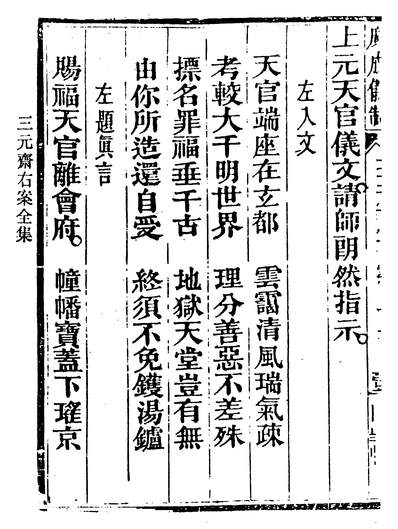 上元天官儀文。請師朗然指示。
左入文
天官端座在玄都 雲靄清風瑞氣疎
考較大千明世界 理分善惡不差殊
摽名罪福垂千古 地獄天堂豈有無
由你所造還自受 終須不免鑊湯鑪
左題眞言
賜福天官離會府。 幢幡寶蓋下瑤京
三元齋右案全集